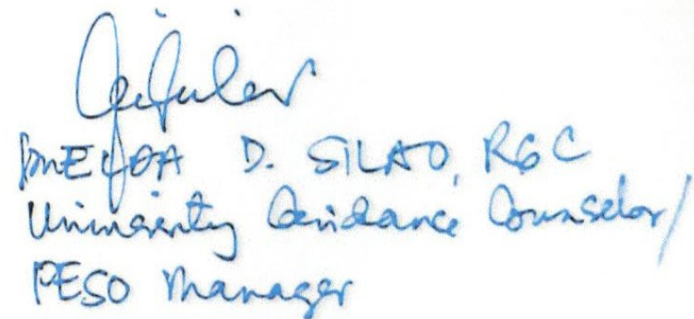 IMELDA D. SILAO, RGC
University Guidance Counselor/
PESO Manager